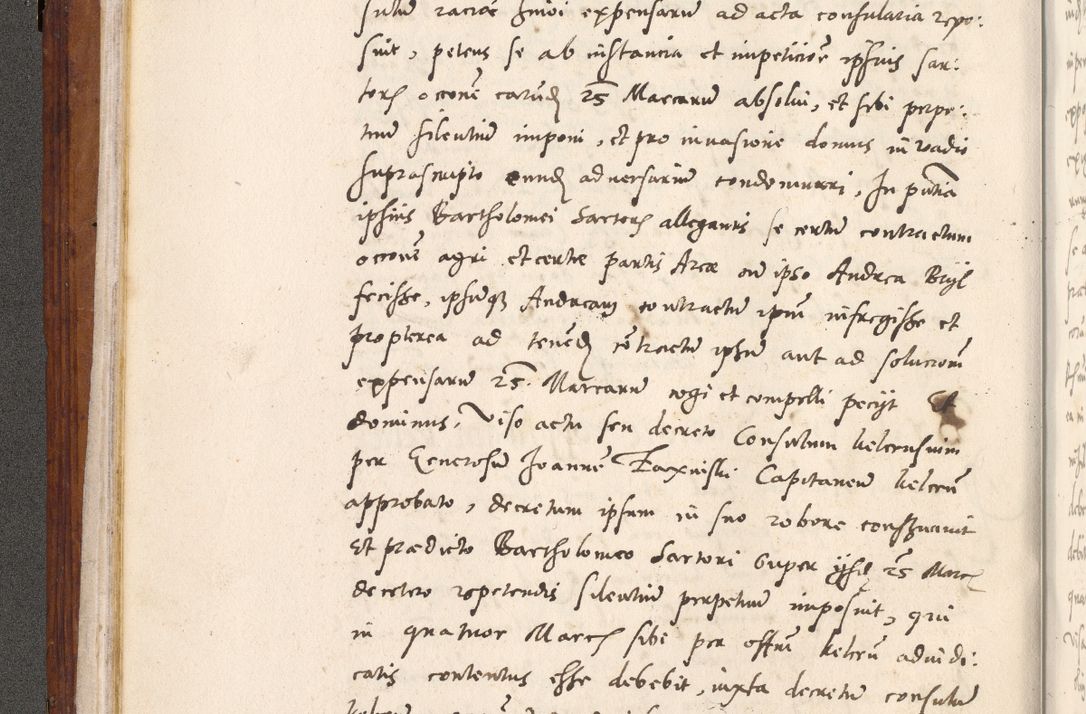 sulum racione huiusmodi expensarum ad acta consularia repo:
suit, petens se ab instancia et impeticione ipsius sar:
toris occone earund 25 Marcarum absolui, et sibi perpe:
tuum silentium imponi, et pro inuasione domus in vadio
suprascripto eund aduersarium condemnari, In pntia
ipsius Bartholomei Sartoris allegantis se certum contractum
occone agri et certae partis Areae cum ipso Andrea Biijl
fecisse, ipsumq Andream contractum ipsum infregisse et
propterea ad tenend contractum ipsum aut ad solucionem
expensarum 25. Marcarum cogi et compelli pecijt Et
dominus, Viso actu seu decreto Consulum kelcensium
per Generosum Joannem Capitaneum kelcen
approbato, decretum ipsum in suo robore conseruauit
Et praedicto Bartholomeo Sartori super ijsd 25 Marc
decetero repetendis silentium perpetuum imposuit, qui
in quatuor Marcis sibi per offm kelcen adiudi:
catis contentus esse debebit, iuxta decretum consulum